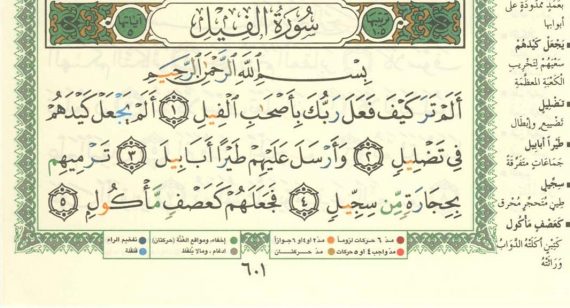 ترتيبها ١٠٥
سُورَةُ الفِيلِ
آياتها ٥
بِسْمِ اللَّهِ الرَّحْمَٰنِ الرَّحِيمِ
أَلَمْ تَرَ كَيْفَ فَعَلَ رَبُّكَ بِأَصْحَٰبِ الْفِيلِ ١ أَلَمْ يَجْعَلْ كَيْدَهُمْ
فِى تَضْلِيلٍ ٢ وَأَرْسَلَ عَلَيْهِمْ طَيْرًا أَبَابِيلَ ٣ تَرْمِيهِم
بِحِجَارَةٍ مِّن سِجِّيلٍ ٤ فَجَعَلَهُمْ كَعَصْفٍ مَّأْكُولٍ ٥
بعَمَدٍ ممدودةٍ على
أبوابها
يَجْعَلْ كَيْدَهُمْ
سَعْيَهُمْ لتخريب
الكَعْبَة المعظّمة
تَضْلِيلٍ
تَضْييعٍ وإبطال
طَيْرًا أبابيلَ
جَمَاعَاتٍ متفرّقةً
سِجِّيلٍ
طينٍ متحجِّرٍ مُحْرَق
كَعَصْفٍ مأكُولٍ
كتِبْنٍ أكلَتْه الدوابُّ
وَرَاثَتْهُ
مدّ ٦ حركات لزوماً
مدّ ٢ أو ٤ أو ٦ جوازاً
إخفاء، ومواقع الغُنَّة (حركتان)
تفخيم الراء
مدّ واجب ٤ أو ٥ حركات
مدّ حركتان
ادغام، وما لا يُلفَظ
قلقلة
٦٠١